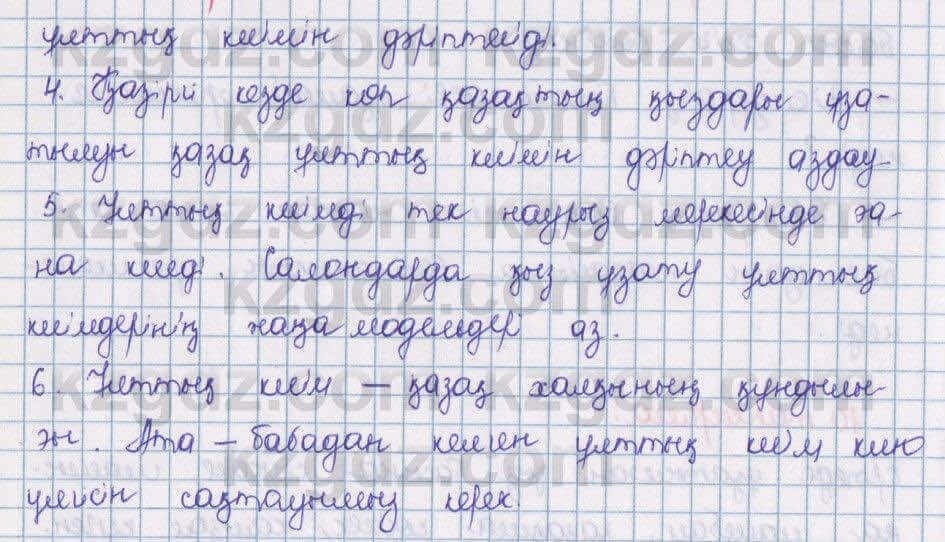 ұлттық киімін дәріптейді.
4. Қазіргі кезде көп қазақтың қыздары ұза-
тылуын қазақ ұлттық киімін дәріптеу аздау.
5. Ұлттық киімді тек наурыз мерекесінде ға-
на киеді. Салондарда қыз ұзату ұлттық
киімдерінің жаңа модельдері аз.
6. Ұлттық киім – қазақ халқының құндылы-
ғы. Ата – бабадан келген ұлттық киім кию
үлгісін сақтауымыз керек.
kzgdz.com